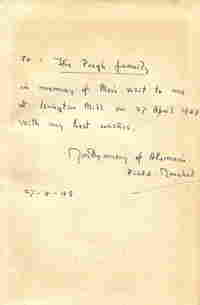 To : The Pugh family
in memory of their visit to me
at Isington Mill on 27 April 1968
with my best wishes.
Montgomery of Alamein
Field Marshal
27-4-68